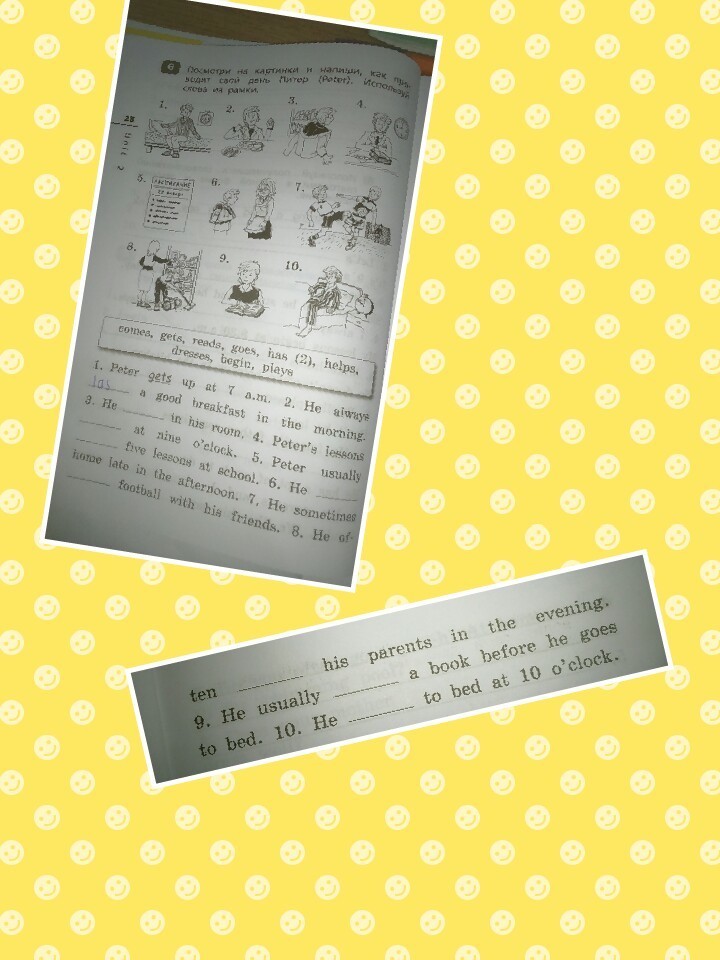 6 Посмотри на картинки и напиши, как про-
водит свой день Питер (Peter). Используй
слова из рамки.
1. 2. 3. 4.
28
Unit 2
5. 6. 7.
РАСПИСАНИЕ
8. 9. 10.
comes, gets, reads, goes, has (2), helps,
dresses, begin, plays
1. Peter gets up at 7 a.m. 2. He always
has a good breakfast in the morning.
3. He ______ in his room. 4. Peter's lessons
______ at nine o'clock. 5. Peter usually
______ five lessons at school. 6. He ______
home late in the afternoon. 7. He sometimes
______ football with his friends. 8. He of-
ten ______ his parents in the evening.
9. He usually ______ a book before he goes
to bed. 10. He ______ to bed at 10 o'clock.